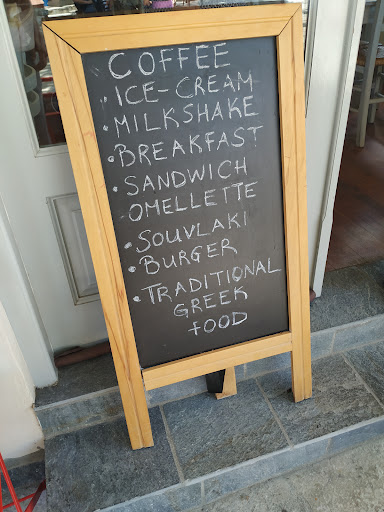 COFFEE
• ICE-CREAM
• MILKSHAKE
• BREAKFAST
• SANDWICH
OMELLETTE
• SOUVLAKI
• BURGER
• TRADITIONAL
GREEK
FOOD